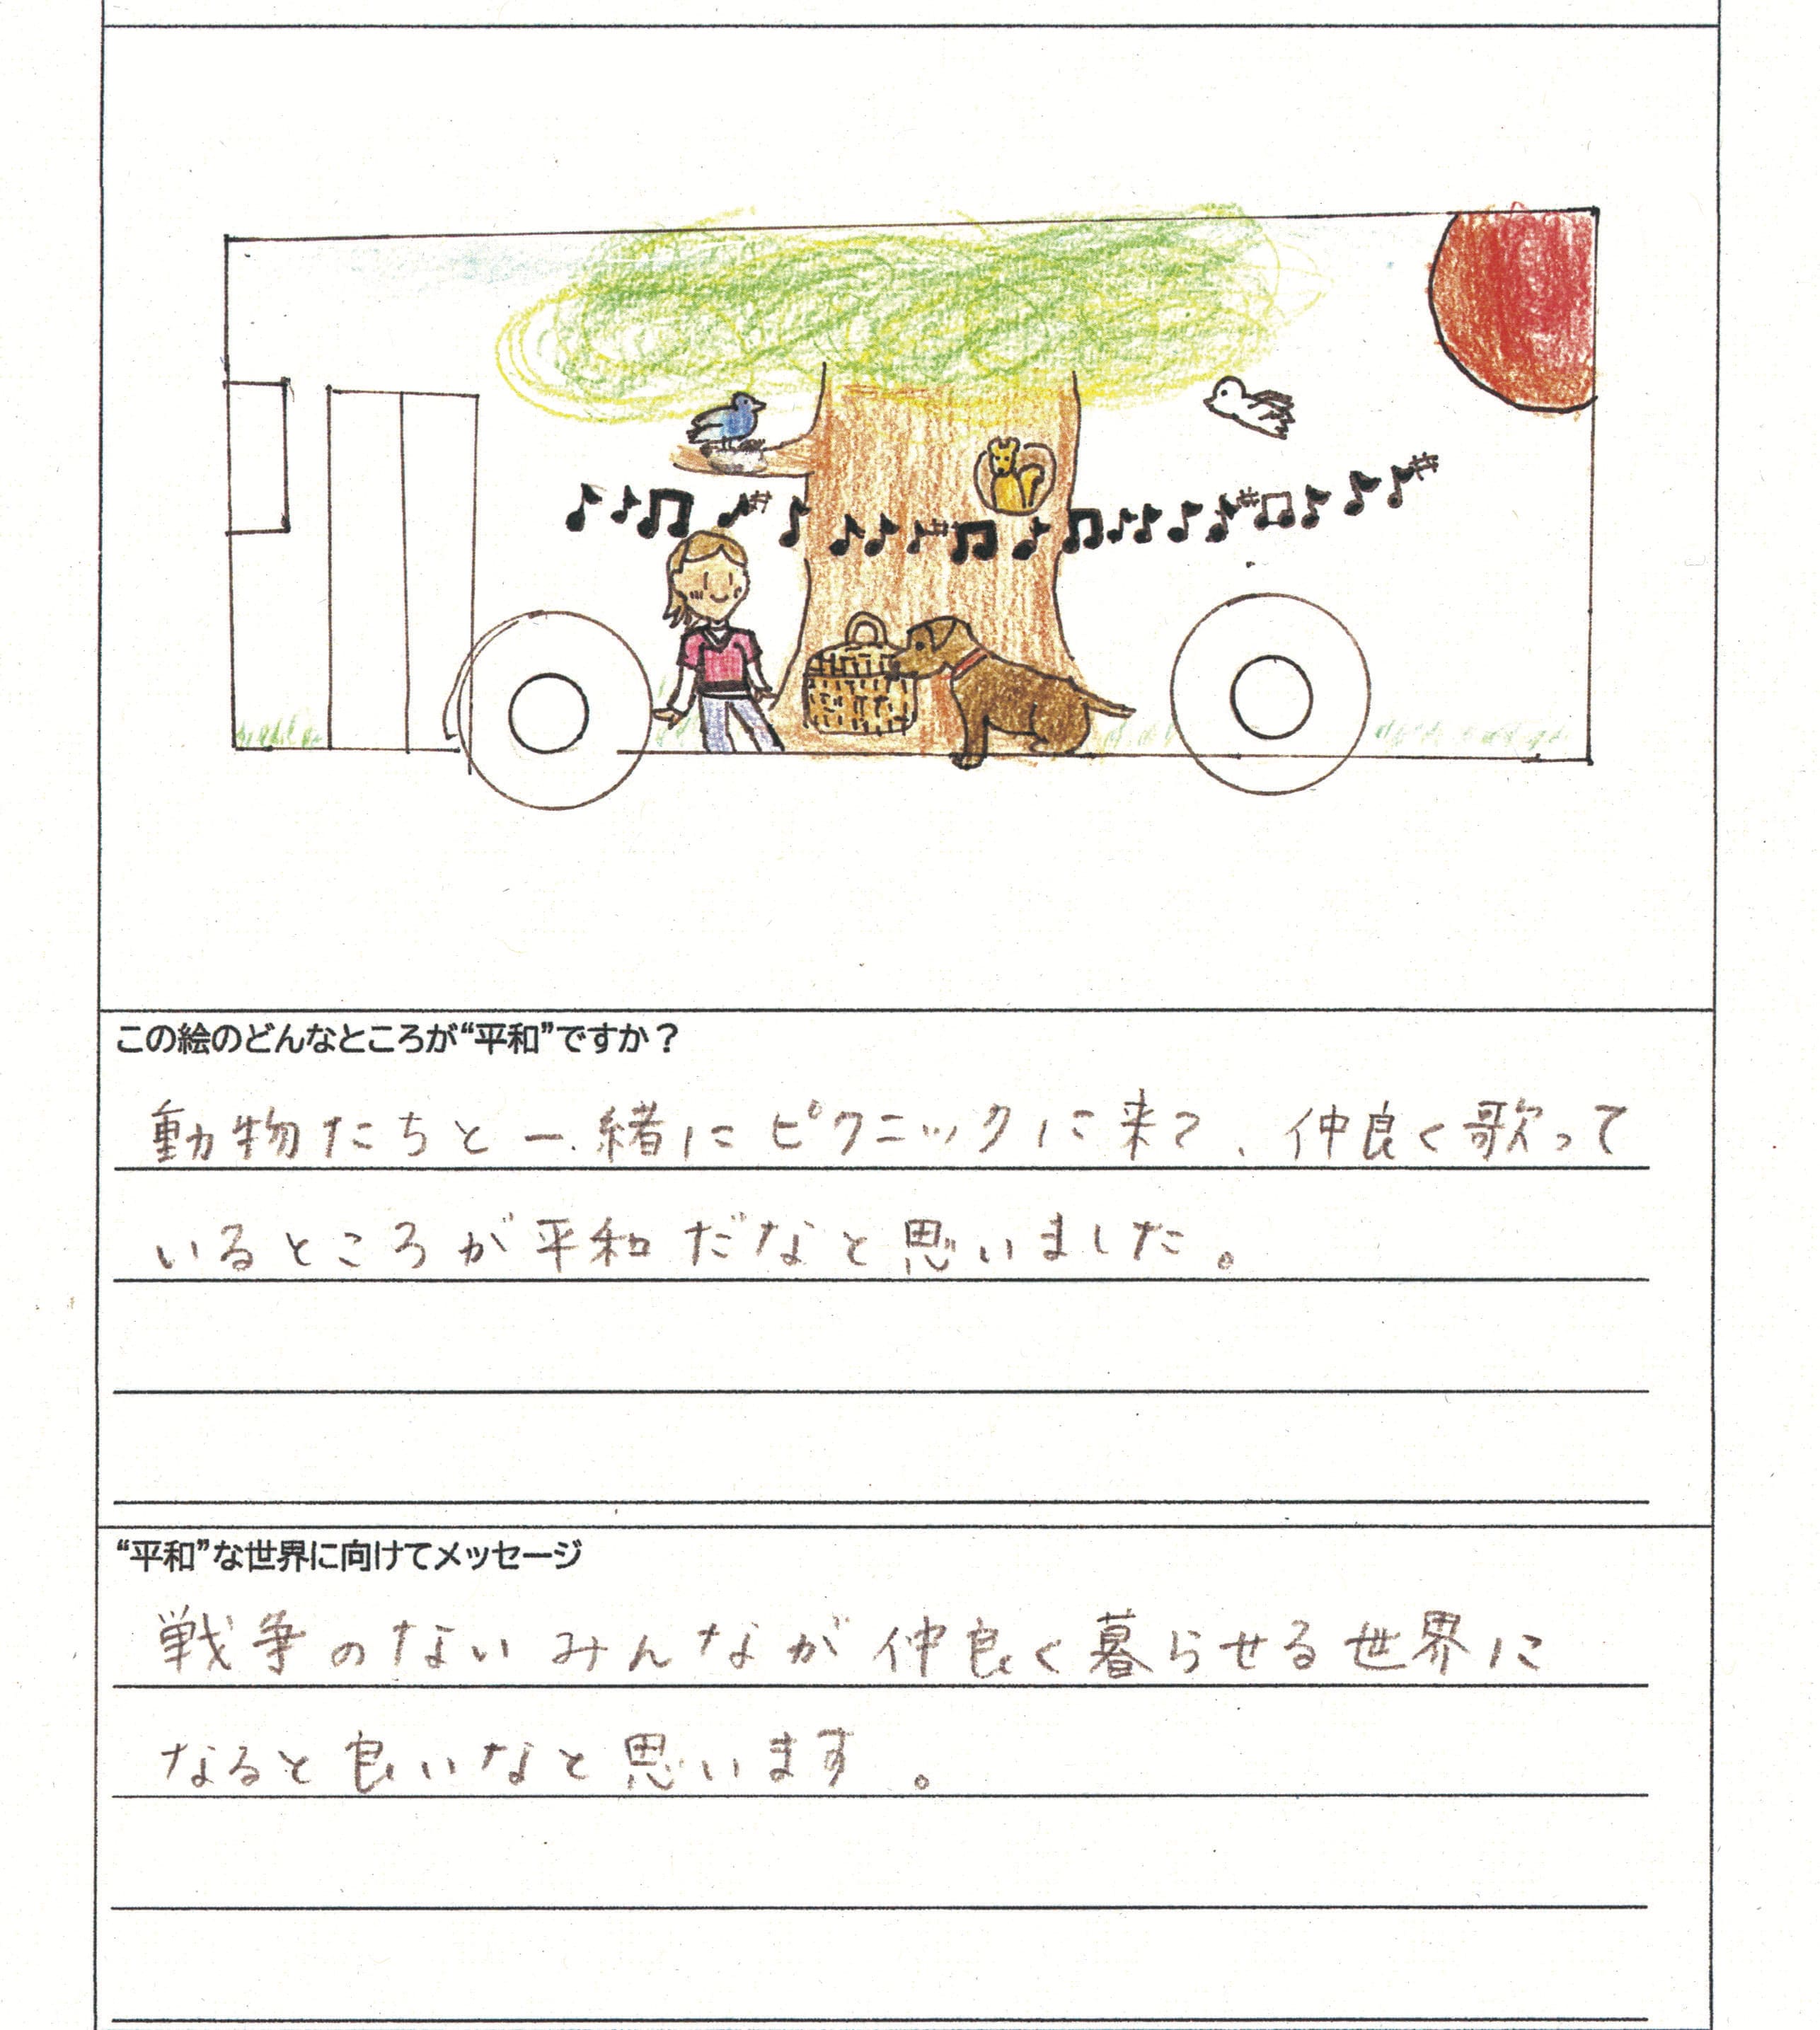 この絵のどんなところが“平和”ですか？
動物たちと一緒にピクニックに来て、仲良く歌って
いるところが平和だなと思いました。
“平和”な世界に向けてメッセージ
戦争のないみんなが仲良く暮らせる世界に
なると良いなと思います。